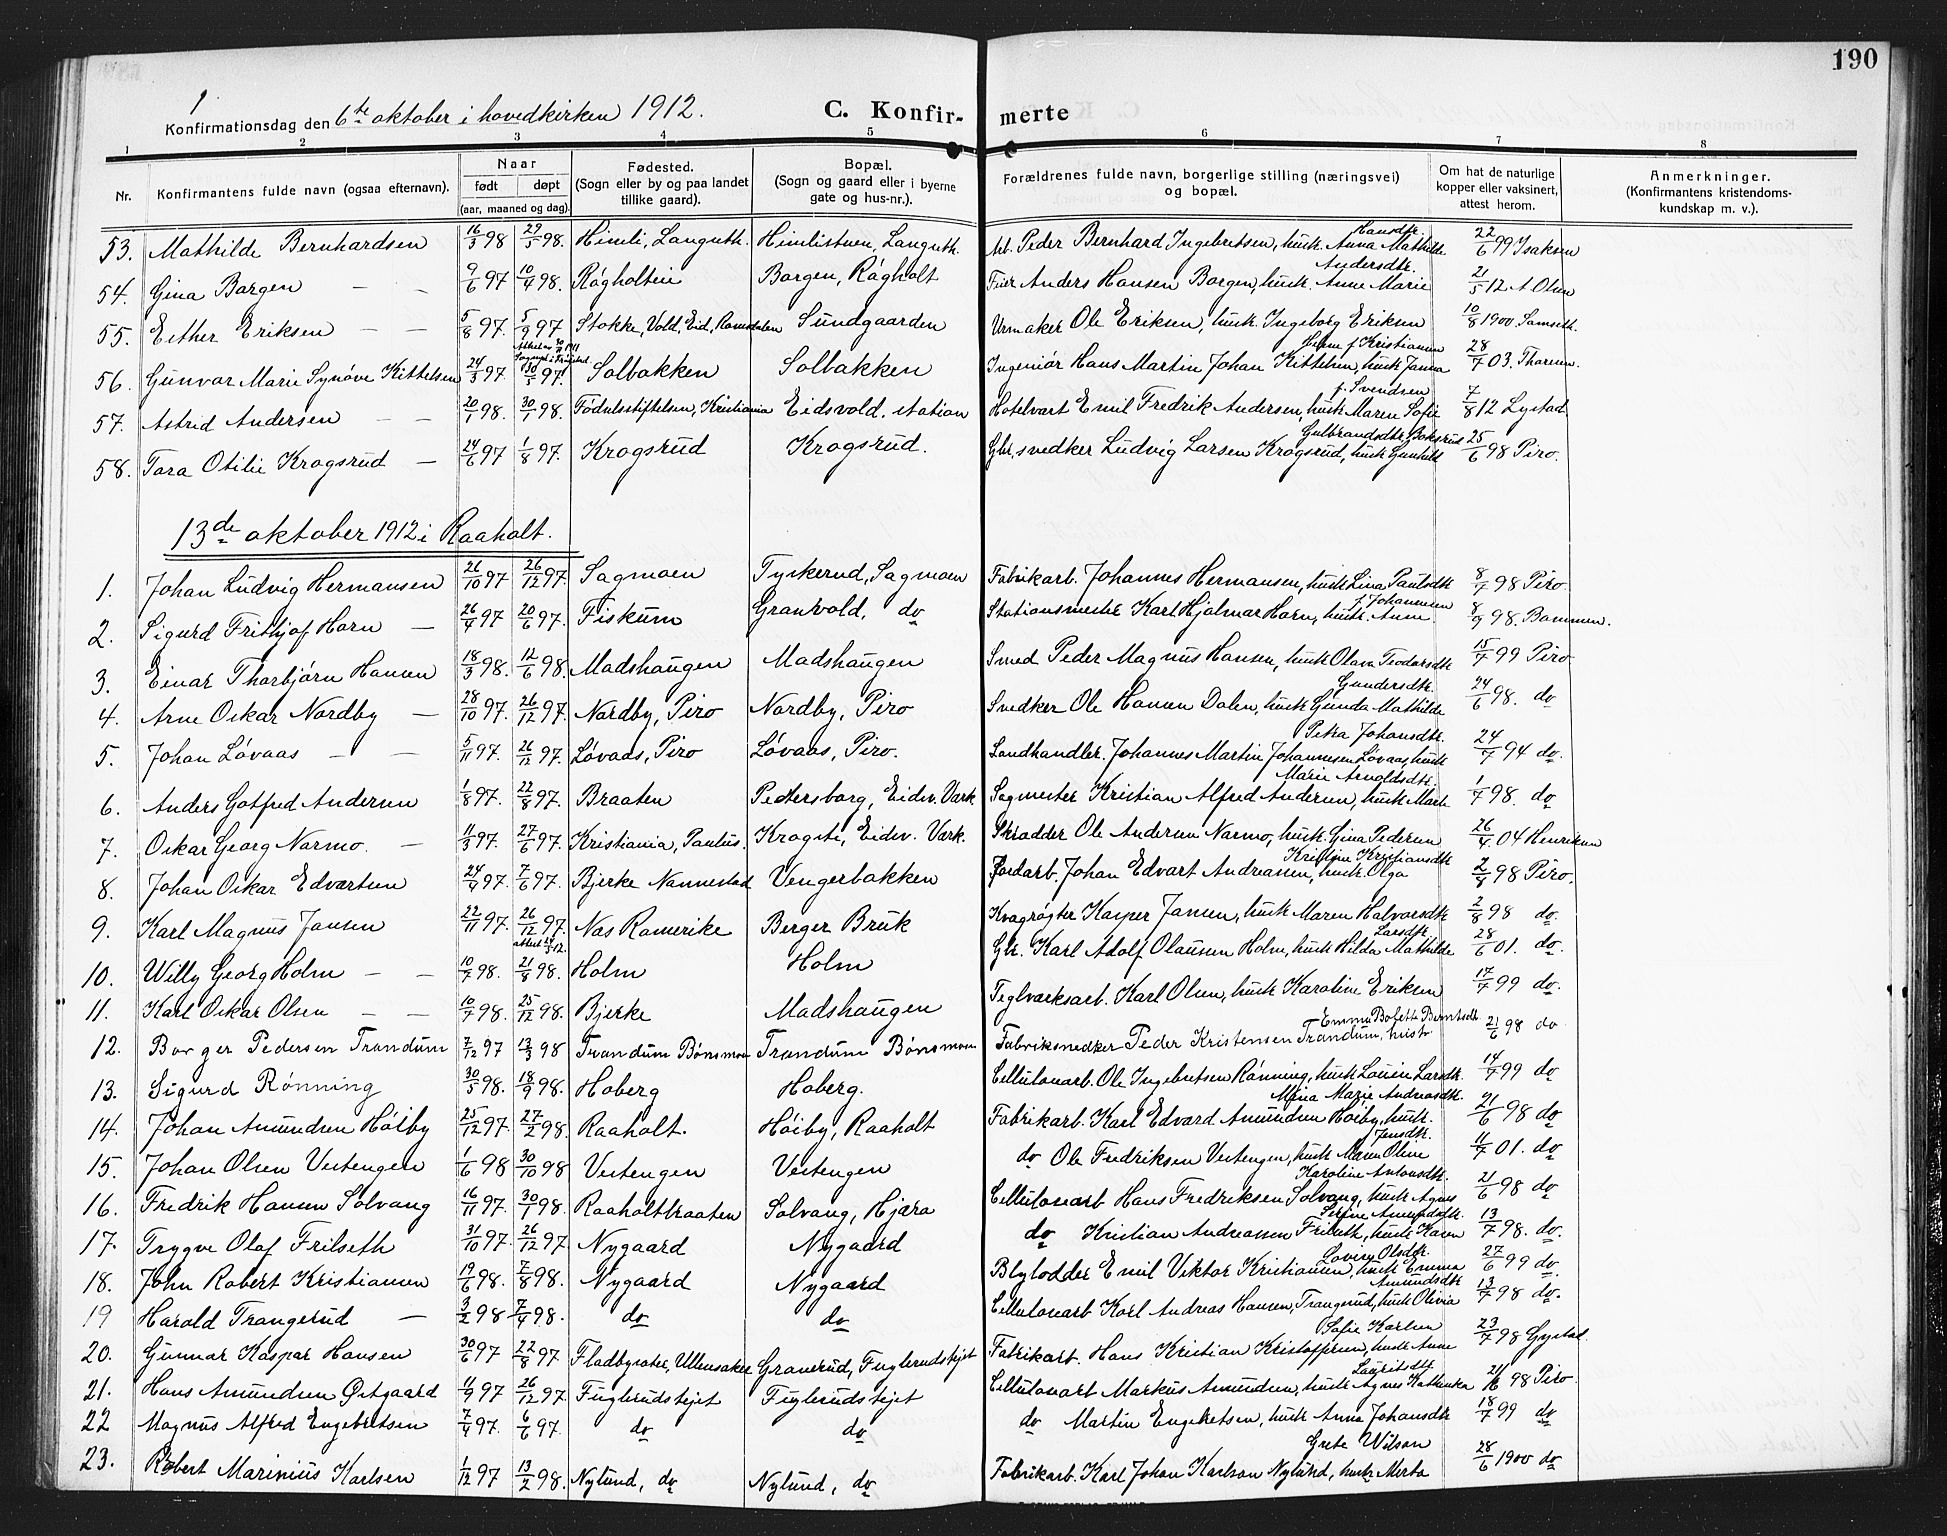 190
1
Konfirmationsdag den 6te oktober i hovedkirken 1912. C. Konfir- merte
1 2 3 4 5 6 7 8
Nr. Konfirmantens fulde navn (ogsaa efternavn). Naar født døpt (aar, maaned og dag). Fødested. (Sogn eller by og paa landet tillike gaard). Bopæl. (Sogn og gaard eller i byerne gate og hus-nr.). Forældrenes fulde navn, borgerlige stilling (næringsvei) og bopæl. Om hat de naturlige kopper eller vaksinert, attest herom. Anmerkninger. (Konfirmantens kristendoms- kundskap m. v.).
53. Mathilde Bernhardsen 16/3 98 29/5 98. Himli, Languth. Himlistuen, Languth. Arb. Peder Bernhard Ingebretsen, hust. Anna Mathilde Hansdtr. 22/6 99 Isaksen
54. Gina Borgen — — 9/6 97 10/4 98. Rågholteie Borgen, Rågholt Feier Anders Hansen Borgen, hust. Anne Marie Andersdtr. 21/5 12 A Olsen
55. Esther Eriksen — — 5/8 97 5/9 97 Stokke, Vold, Eid, Romsdalen Sundgaarden Urmaker Ole Eriksen, hust. Ingeborg Eriksen 10/8 1900 Samseth.
56. Gunvor Marie Synøve Kittelsen 24/3 97. 30/5 97. Solbakken Solbakken Ingeniør Hans Martin Johan Kittelsen, hust. Janna f. Kristiansen 28/7 03. Thoresen.
57. Astrid Andersen — — 20/1 98. 30/1 98. Fødselsstiftelsen, Kristiania Eidsvold station Hotelvært Emil Fredrik Andersen, hust. Maren Sofie f. Svendsen 7/8 12 Lystad
58. Tora Otilie Krogsrud — 24/6 97 1/8 97. Krogsrud Krogsrud. Gbr. snedker Ludvig Larsen Krogsrud, hust. Gunhild Gulbrandsdtr. Boksrud 25/6 98 Piro.
13de oktober 1912 i Raaholt.
1. Johan Ludvig Hermansen 26/10 97 26/12 97. Sagmoen Tyskerud, Sagmoen Fabrikarb. Johannes Hermansen, hust. Lina Paulsdtr. 8/7 98 Piro
2. Sigurd Frithjof Horn — 26/4 97 20/6 97. Fiskum Granvold, do Stationsmester Karl Hjalmar Horn, hust. Anne f. Johannesen 8/9 98. Bommen.
3. Einar Thorbjørn Hansen 18/3 98. 12/6 98. Madshaugen Madshaugen Smed Peder Magnus Hansen, hust. Olava Teodorsdtr. 15/7 99 Piro
4. Arne Oskar Nordby — 28/10 97. 26/12 97. Nordby, Piro Nordby, Piro Snedker Ole Hansen Dalen, hust. Gunda Mathilde Gundersdtr. 24/6 98. do
5. Johan Løvaas — — 5/11 97. 26/12 97. Løvaas, Piro Løvaas, Piro. Landhandler. Johannes Martin Johannesen Løvaas, hust. Petra Johansdtr. 24/7 94 do.
6. Anders Gotfred Andersen 1/8 97. 22/8 97. Braaten Pedersborg, Eidsv. Værk Sagmester Kristian Alfred Andersen, hust. Marte Marie Arnoldsdtr. 1/7 98. do
7. Oskar Georg Narmo. — 11/3 97. 27/6 97. Kristiania, Paulus. Krogste, Eidsv. Værk. Skrædder Ole Andersen Narmo, hust. Gina Pedersen 26/4 04 Henriksen
8. Johan Oskar Edvartsen 24/4 97. 7/6 97. Bjerke Nannestad Vengerbakken Jordarb. Johan Edvart Andreassen, hust. Olga Kristine Kristiansdtr. 2/8 98 Piro.
9. Karl Magnus Jansen 22/11 97. 26/12 97. Nes Romerike Berger Bruk Kvægrøgter Kasper Jansen, hust. Maren Halvorsdtr. 2/8 98 do.
10. Willy Georg Holm — — 10/7 98. 21/8 98. Holm Holm Gbr. Karl Adolf Olausen Holm, hust. Hilda Mathilde Larsdtr. 28/6 01. do.
11. Karl Oskar Olsen — — 10/7 98. 25/12 98. Bjerke Madshaugen Teglværksarb. Karl Olsen, hust. Karoline Eriksen 17/7 99 do.
12. Borger Pedersen Trandum 7/12 97 13/3 98 Trandum Bønsmoen Trandum Bønsmoen Fabriksnedker Peder Kristensen Trandum, hustr. Emma Bolette Berntsdtr. 21/6 98 do
13. Sigurd Rønning 30/5 98. 18/9 98. Hoberg Hoberg. Cellulosearb. Ole Ingebretsen Rønning, hust. Lovise Larsdtr. 14/7 99 do
14. Johan Amundsen Høiby 25/12 97. 27/2 98. Raaholt. Høiby, Raaholt Fabrikarb. Karl Edvard Amundsen Høiby, hust. Mina Marie Andreasdtr. 21/6 98 do
15. Johan Olsen Vestengen 1/6 98 30/10 98 Vestengen Vestengen do Ole Fredriksen Vestengen, hust. Maren Oline Jensdtr. 11/7 01. do
16. Fredrik Hansen Solvang 16/11 97. 30/1 98. Raaholtbraaten Solvang, Hjæra Cellulosearb Hans Fredriksen Solvang, hust. Agnes Karoline Antonsdtr. 21/6 98 do
17. Trygve Olaf Frilseth 31/10 97. 26/12 97 Nygaard Nygaard do Kristian Andreassen Frilseth, hust. Karen Serine Amundsdtr. 13/7 98. do.
18. John Robert Kristiansen 19/6 98. 7/8 98. Nygaard Nygaard Blylodder Emil Viktor Kristiansen, hust. Emma Lovise Olsdtr. 27/6 99 do
19 Harald Trangerud — 3/2 98 7/4 98. do do Cellulosearb Karl Andreas Hansen, Trangerud, hust. Olivia Amundsdtr. 13/7 98 do.
20. Gunnar Kaspar Hansen 30/6 97 22/8 97 Fladbyseter, Ullensaker Granerud, Fuglerudstejet Fabrikarb. Hans Kristian Kristoffersen, hust. Anne Sofie Karlsen 23/7 98 Gystad
21. Hans Amundsen Østgaard 11/9 97 26/12 97. Fuglerudstejet Fuglerudstejet Cellulosearb Markus Amundsen, hust. Agnes Kathinka Lauritsdtr. 21/6 98 Piro
22 Magnus Alfred Engebretsen 7/4 97. 6/6 97. do do do Martin Engebretsen, hust. Anna Johansdtr. 18/7 99 do
23. Robert Marinius Karlsen 1/12 97 13/2 98. Nylund, do Nylund, do Fabrikarb. Karl Johan Karlson Nylund, hust. Merta Grete Wilson 28/6 1900 do